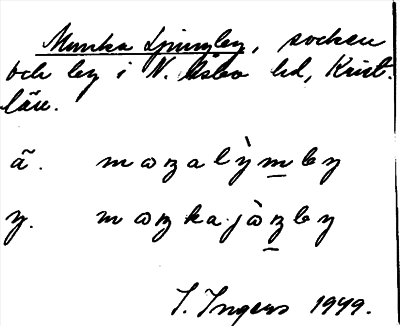 Munka Ljungby, socken
och by i N. Åsbo hd, Krist.
län.
ã. mɷŋalỳmby
y. mɷŋkajɷ̀ŋby
I. Ingers 1949.